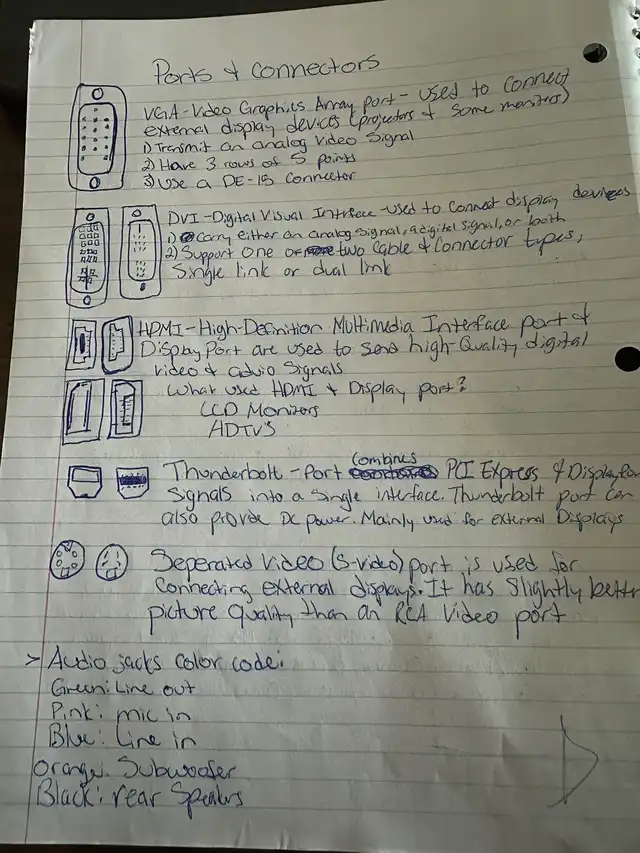 Ports & Connectors
VGA-Video Graphics Array port- used to connect
external display devices (projectors & some monitors)
1) Transmit an analog video signal
2) Have 3 rows of 5 points
3) Use a DE-15 Connector
DVI-Digital Visual Intrface-used to connect display devices
1) Carry either an analog signal, a digital signal, or both
2) Support one or two cable & connector types,
Single link or dual link
HDMI-High-Definition Multimedia Interface port &
DisplayPort are used to send high-Quality digital
video & audio signals
What used HDMI & Display port?
LCD Monitors
HDTVs
Thunderbolt-Port combines PCI Express & DisplayPor
Signals into a Single interface. Thunderbolt port can
also provide DC power. Mainly used for external Displays
Seperated Video (S-video) port is used for
Connecting external displays. It has slightly bettr
picture quality than an RCA video port
> Audio jacks color code:
Green: Line out
Pink: mic in
Blue: Line in
Orange: Subwoofer
Black: rear Speakrs